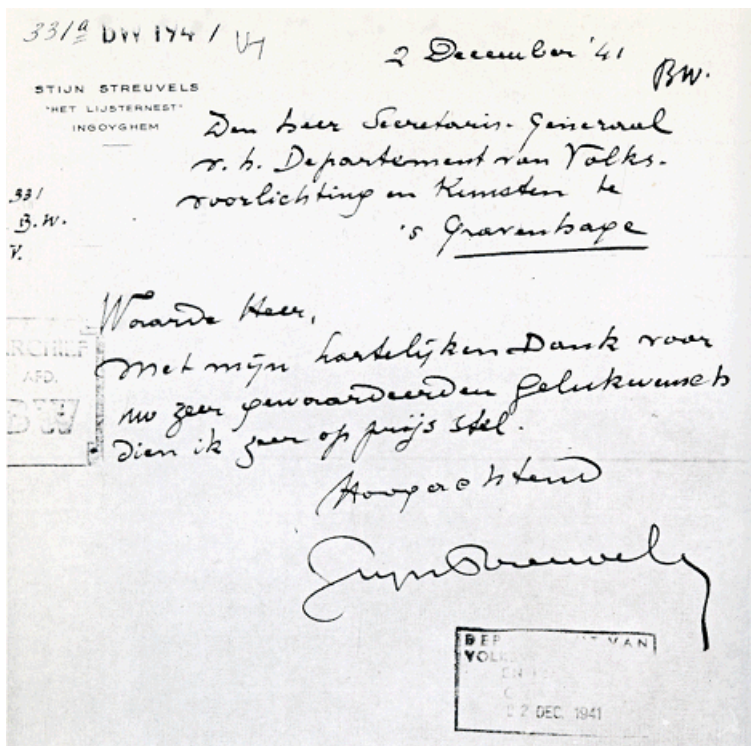 331a DW 1941
2 December '41
B.W.
STIJN STREUVELS
"HET LIJSTERNEST"
INGOYGHEM
Den heer Secretaris-Generaal
v. h. Departement van Volks-
voorlichting en Kunsten te
's Gravenhage
331
B.W.
V.
Waarde Heer,
Met mijn hartelijken Dank voor
uw zeer gewaardeerden gelukwensch
dien ik zeer op prijs stel.
Hoogachtend
Stijn Streuvels
ARCHIEF
AFD.
BW
DEP VAN
VOLKS
EN
22 DEC. 1941